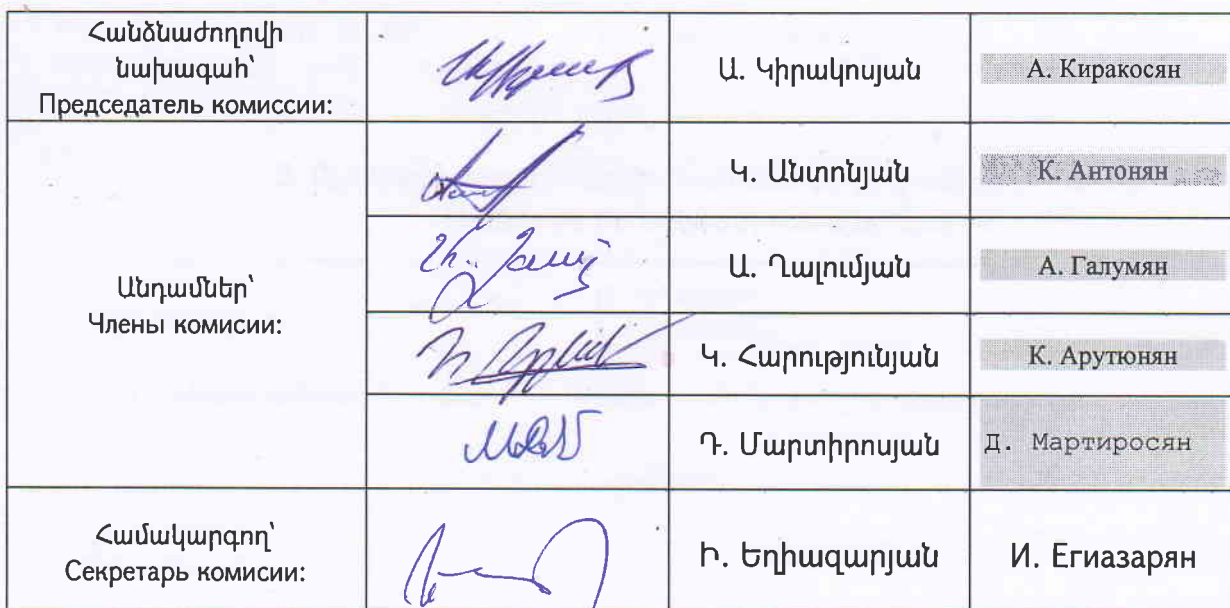 Հանձնաժողովի
նախագահ՝
Председатель комиссии:
Ա. Կիրակոսյան
А. Киракосян
Անդամներ՝
Члены комисии:
Կ. Անտոնյան
К. Антонян
Ա. Ղալումյան
А. Галумян
Կ. Հարությունյան
К. Арутюнян
Դ. Մարտիրոսյան
Д. Мартиросян
Համակարգող՝
Секретарь комисии:
Ի. Եղիազարյան
И. Егиазарян